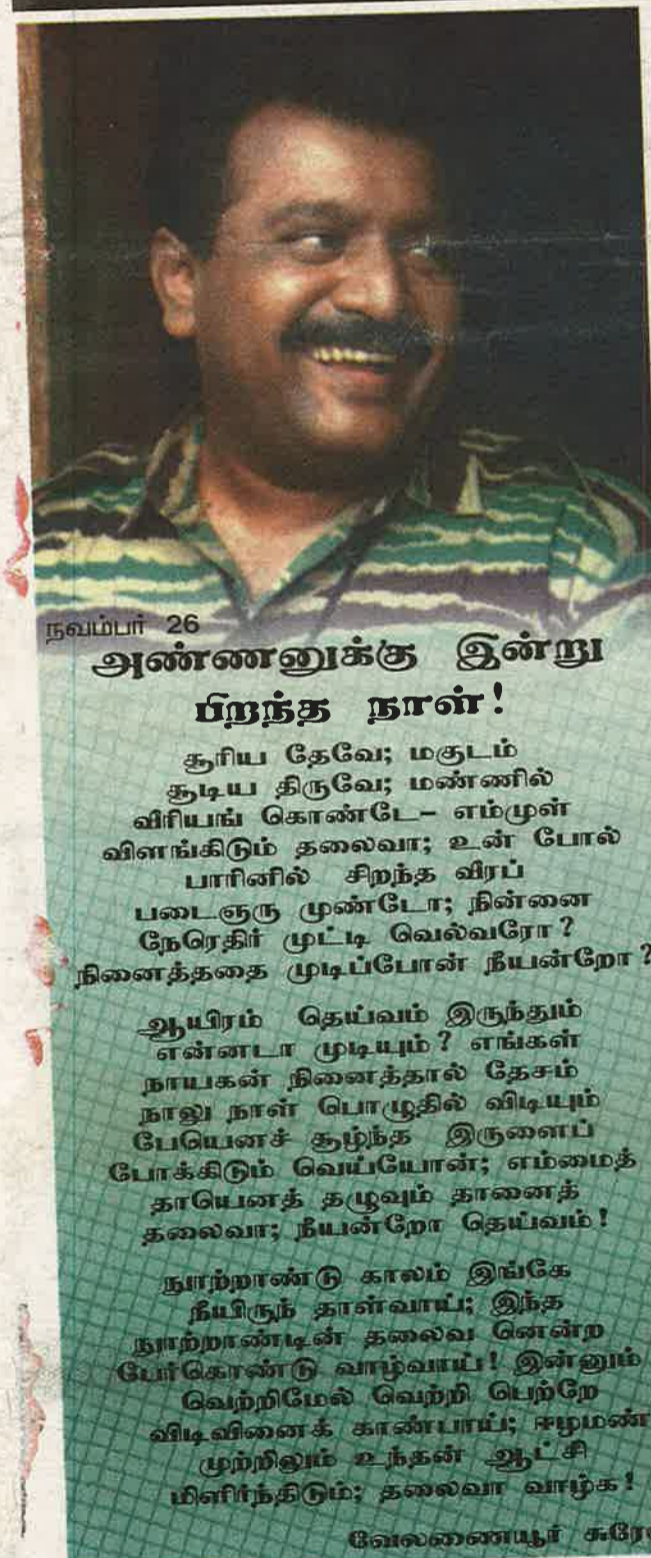 நவம்பர் 26
அண்ணனுக்கு இன்று
பிறந்த நாள்!
சூரிய தேவே; மகுடம்
சூடிய திருவே; மண்ணில்
வீரியங் கொண்டே- எம்முள்
விளங்கிடும் தலைவா; உன் போல்
பாரினில் சிறந்த வீரப்
படைஞரு முண்டோ; நின்னை
நேரெதிர் முட்டி வெல்வரோ?
நினைத்ததை முடிப்போன் நீயன்றோ?
ஆயிரம் தெய்வம் இருந்தும்
என்னடா முடியும்? எங்கள்
நாயகன் நினைத்தால் தேசம்
நாலு நாள் பொழுதில் விடியும்
பேயெனச் சூழ்ந்த இருளைப்
போக்கிடும் வெய்யோன்; எம்மைத்
தாயெனத் தழுவும் தானைத்
தலைவா; நீயன்றோ தெய்வம்!
நூற்றாண்டு காலம் இங்கே
நீயிருந் தாள்வாய்; இந்த
நூற்றாண்டின் தலைவ னென்ற
பேர்கொண்டு வாழ்வாய்! இன்னும்
வெற்றிமேல் வெற்றி பெற்றே
விடிவினைக் காண்பாய்; ஈழமண்
முற்றிலும் உந்தன் ஆட்சி
மிளிர்ந்திடும்; தலைவா வாழ்க!
வேலணையூர்